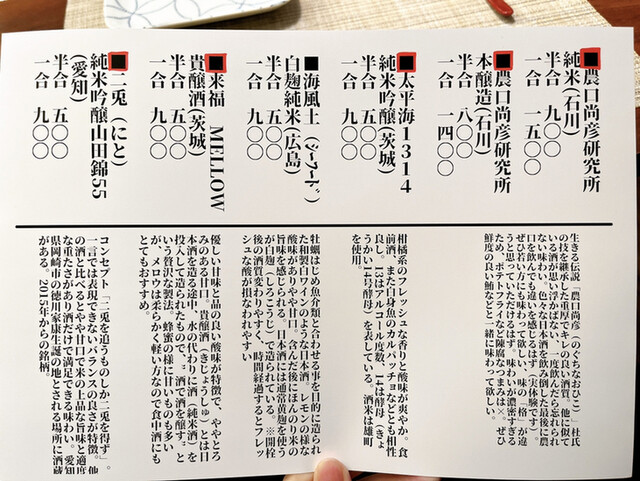 ■農口尚彦研究所
純米(石川)
半合 九〇〇
一合 一五〇〇
■農口尚彦研究所
本醸造(石川)
半合 八〇〇
一合 一四〇〇
■太平海1314
純米吟醸(茨城)
半合 五〇〇
一合 九〇〇
■海風土(シーフード)
白麹純米(広島)
半合 五〇〇
一合 九〇〇
■来福 MELLOW
貴醸酒(茨城)
半合 五〇〇
一合 九〇〇
■二兎(にと)
純米吟醸山田錦55
(愛知)
半合 五〇〇
一合 九〇〇
生きる伝説「農口尚彦(のぐちなおひこ)」杜氏
の技を継承した重厚でキレの良い酒質。他に似て
いる酒が思い浮かばない、一度飲んだら忘れられ
ない味わい。色々な日本酒を飲み倒した最後に農
口を飲んでも違いを感じるはず(実体験です)。
ぜひ若い方にも味わって欲しい。味の「格」が違
うと思っていただけるはず。味わいが濃密すぎる
ため、ポテトフライなど陳腐なつまみは×。ぜひ
鮮度の良い鮪などと一緒に味わって欲しい。
柑橘系のフレッシュな香りと酸味が爽やか。食
前酒、また白身魚のカルパッチョなどとも相性
良し。13はアルコール度数、14は酵母(きょ
うかい14号酵母)を表している。酒米は雄町
を使用。
牡蠣はじめ魚介類と合わせる事を目的に造られ
た和製白ワインのような日本酒。レモンの様な
酸味がありやや甘口。飲んだ後ほんのりの米の
旨味を感じられる。日本酒には通常黄麹を使う
が白麹(しろこうじ)で造られている。※開栓
後の酒質変わりやすく、時間経過するとフレッ
シュな酸が損なわれやすい
優しい甘味と品の良い酸味が特徴で、ややとろ
みのある甘口。貴醸酒(きじょうしゅ)とは日
本酒を造る途中、水の代わりに酒(純米酒)を
投入して造られたもので、"酒で酒を醸す"と
いう贅沢な製法。蜂蜜の様に甘いものも多い
が、メロウは柔らかく軽い方なので食中酒にも
とてもおすすめ。
コンセプト「二兎を追うものしか二兎を得ず」。
一言では表現できないバランスの良さが特徴。他
の酒と比べるとやや甘口で米の上品な旨味と適度
な重たさがあり酒だけで満足できる味わい。愛知
県岡崎市の徳川家康生誕の地とされる場所に酒蔵
がある。2015年からの銘柄